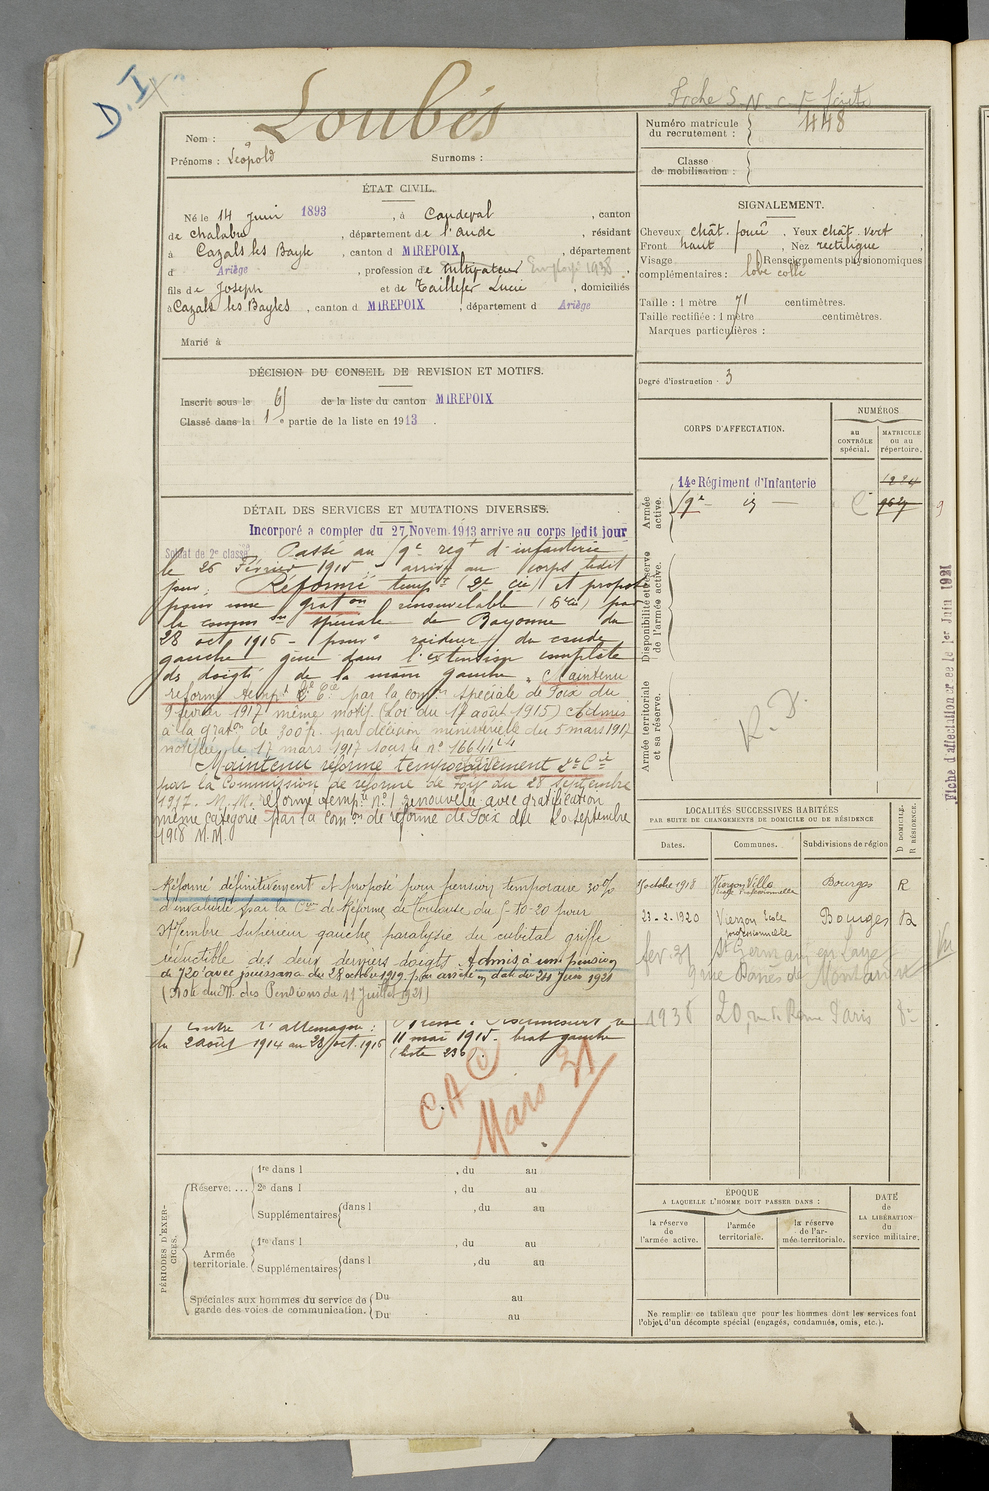 D. IX
Fiche S.N.C.F. faite
Loubés
Nom :
Prénoms : Léopold
Surnoms :
Numéro matricule
du recrutement :
448
Classe
de mobilisation :
ÉTAT CIVIL.
Né le 14 Juin 1893, à Caudeval, canton
de Chalabre, département de l'Aude, résidant
à Cazals les Bayle, canton d MIREPOIX, département
d Ariège, profession de cultivateur Employé 1938
fils de Joseph et de Taillefer Lucie, domiciliés
à Cazals les Bayles, canton d MIREPOIX, département d Ariège
Marié à
SIGNALEMENT.
Cheveux chât. foncé. Yeux chât. vert
Front haut, Nez rectiligne
Visage Renseignements physionomiques
complémentaires : lobe collé
Taille : 1 mètre 71 centimètres.
Taille rectifiée : 1 mètre centimètres.
Marques particulières :
Degré d'instruction : 3
DÉCISION DU CONSEIL DE REVISION ET MOTIFS.
Inscrit sous le de la liste du canton MIREPOIX
Classé dans la 1e partie de la liste en 1913.
CORPS D'AFFECTATION.
NUMÉROS
au
CONTRÔLE
spécial.
MATRICULE
ou au
répertoire.
Armée
active.
14e Régiment d'Infanterie
Disponibilité et réserve
de l'armée active.
Armée territoriale
et sa réserve.
R. D.
Fiche d'affectation créée le 1er Juin 1921
DÉTAIL DES SERVICES ET MUTATIONS DIVERSES.
Incorporé à compter du 27 Novem. 1913 arrivé au corps ledit jour
Soldat de 2e classe. Passé au 9e régt d'infanterie
le 26 Février 1915. arrivé au corps ledit
jour. Réformé tempre (2e cie) et proposé
pour une graton renouvelable (6e cie) par
la comon spéciale de Bayonne du
28 oct 1916 - pour raideur du coude
gauche gêne dans l'extension complète
des doigts de la main gauche. Maintenu
réformé tempt 2e Cie par la comon spéciale de Foix du
9 février 1917 même motif. (Loi du 17 août 1915) Admis
à la graton de 300 f. par décision ministérielle du 5 mars 1917
notifiée le 17 mars 1917 sous le no
Maintenu réformé temporairement 2e Cie
par la Commission de réforme de Foix du 28 Septembre
1917. M.M. réformé tempre no 1 renouvelée avec gratification
même catégorie par la comon de réforme de Foix du 20 septembre
1918 M.M.
Réformé définitivement et proposé pour pension temporaire 30 %
d'invalidité par la Con de Réforme de Toulouse du 5-10-20 pour
Membre supérieur gauche paralysie du cubital griffe
réductible des deux derniers doigts. Admis à une pension
de 720 avec jouissance du 28 octobre 1919 par arrêté en date du 24 Juin 1921
(Note du M. des Pensions du 11 Juillet 1921)
contre l'allemagne :
du 2 août 1914 au 28 oct. 1916
11 mai 1915 - bras gauche
(liste 236)
C A C
Mars 31
LOCALITÉS SUCCESSIVES HABITÉES
PAR SUITE DE CHANGEMENTS DE DOMICILE OU DE RÉSIDENCE
Dates.
Communes.
Subdivisions de région
D DOMICILE.
R RÉSIDENCE.
1 octobre 1918 Vierzon Ville Bourges R
École Professionnelle
23-2-1920 Vierzon École Bourges R
professionnelle
fev. 31 St Germain en Laye
1938 20, rue de Rome Paris
PÉRIODES D'EXERCICES.
Réserve....
1re dans l , du au
2e dans l , du au
Supplémentaires dans l , du au
Armée
territoriale.
1re dans l , du au
Supplémentaires dans l , du au
Spéciales aux hommes du service de
garde des voies de communication.
Du au
Du au
ÉPOQUE
A LAQUELLE L'HOMME DOIT PASSER DANS :
la réserve
de
l'armée active.
l'armée
territoriale.
la réserve
de l'ar-
mée territoriale.
DATE
de
LA LIBÉRATION
du
service militaire.
Ne remplir ce tableau que pour les hommes dont les services font
l'objet d'un décompte spécial (engagés, condamnés, omis, etc.).